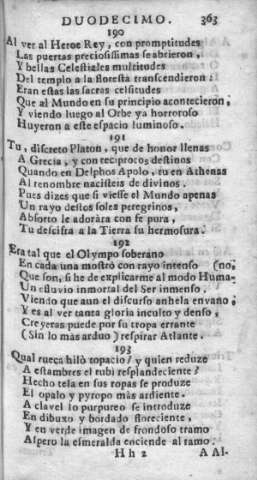 DUODECIMO. 363
190
Al ver al Heroe Rey, con promptitudes
Las puertas preciosissimas se abrieron,
Y bellas Celestiales multitudes
Del templo a la floresta transcendieron:
Eran estas las sacras celsitudes
Que al Mundo en su principio acontecieron,
Y viendo luego al Orbe ya horroroso
Huyeron a este espacio luminoso.
191
Tu, discreto Platon, que de honor llenas
A Grecia, y con reciprocos destinos
Quando en Delphos Apolo, tu en Athenas
Al renombre nacisteis de divinos.
Pues dizes que si viesse el Mundo apenas
Un rayo destos soles peregrinos,
Absorto le adorára con fe pura,
Tu descifra a la Tierra su hermosura.
192
Era tal que el Olympo soberano
En cada una mostrò con rayo intenso (no,
Que son, si he de explicarme al modo Huma-
Un efluvio inmortal del Ser inmenso.
Viendo que aun el discurso anhela envano,
Y es al ver tanta gloria inculto y denso,
Creyeras puede por su tropa errante
(Sin lo mas arduo) respirar Atlante.
193
Qual rueca hilò topacio? y quien reduze
A estambres el rubi resplandeciente?
Hecho tela en sus ropas se produze
El opalo y pyropo màs ardiente.
A clavel lo purpureo se introduze
En dibuxo y bordado floreciente,
Y en verde imagen de frondoso tramo
Aspero la esmeralda enciende al ramo.
Hh 2 A Al-